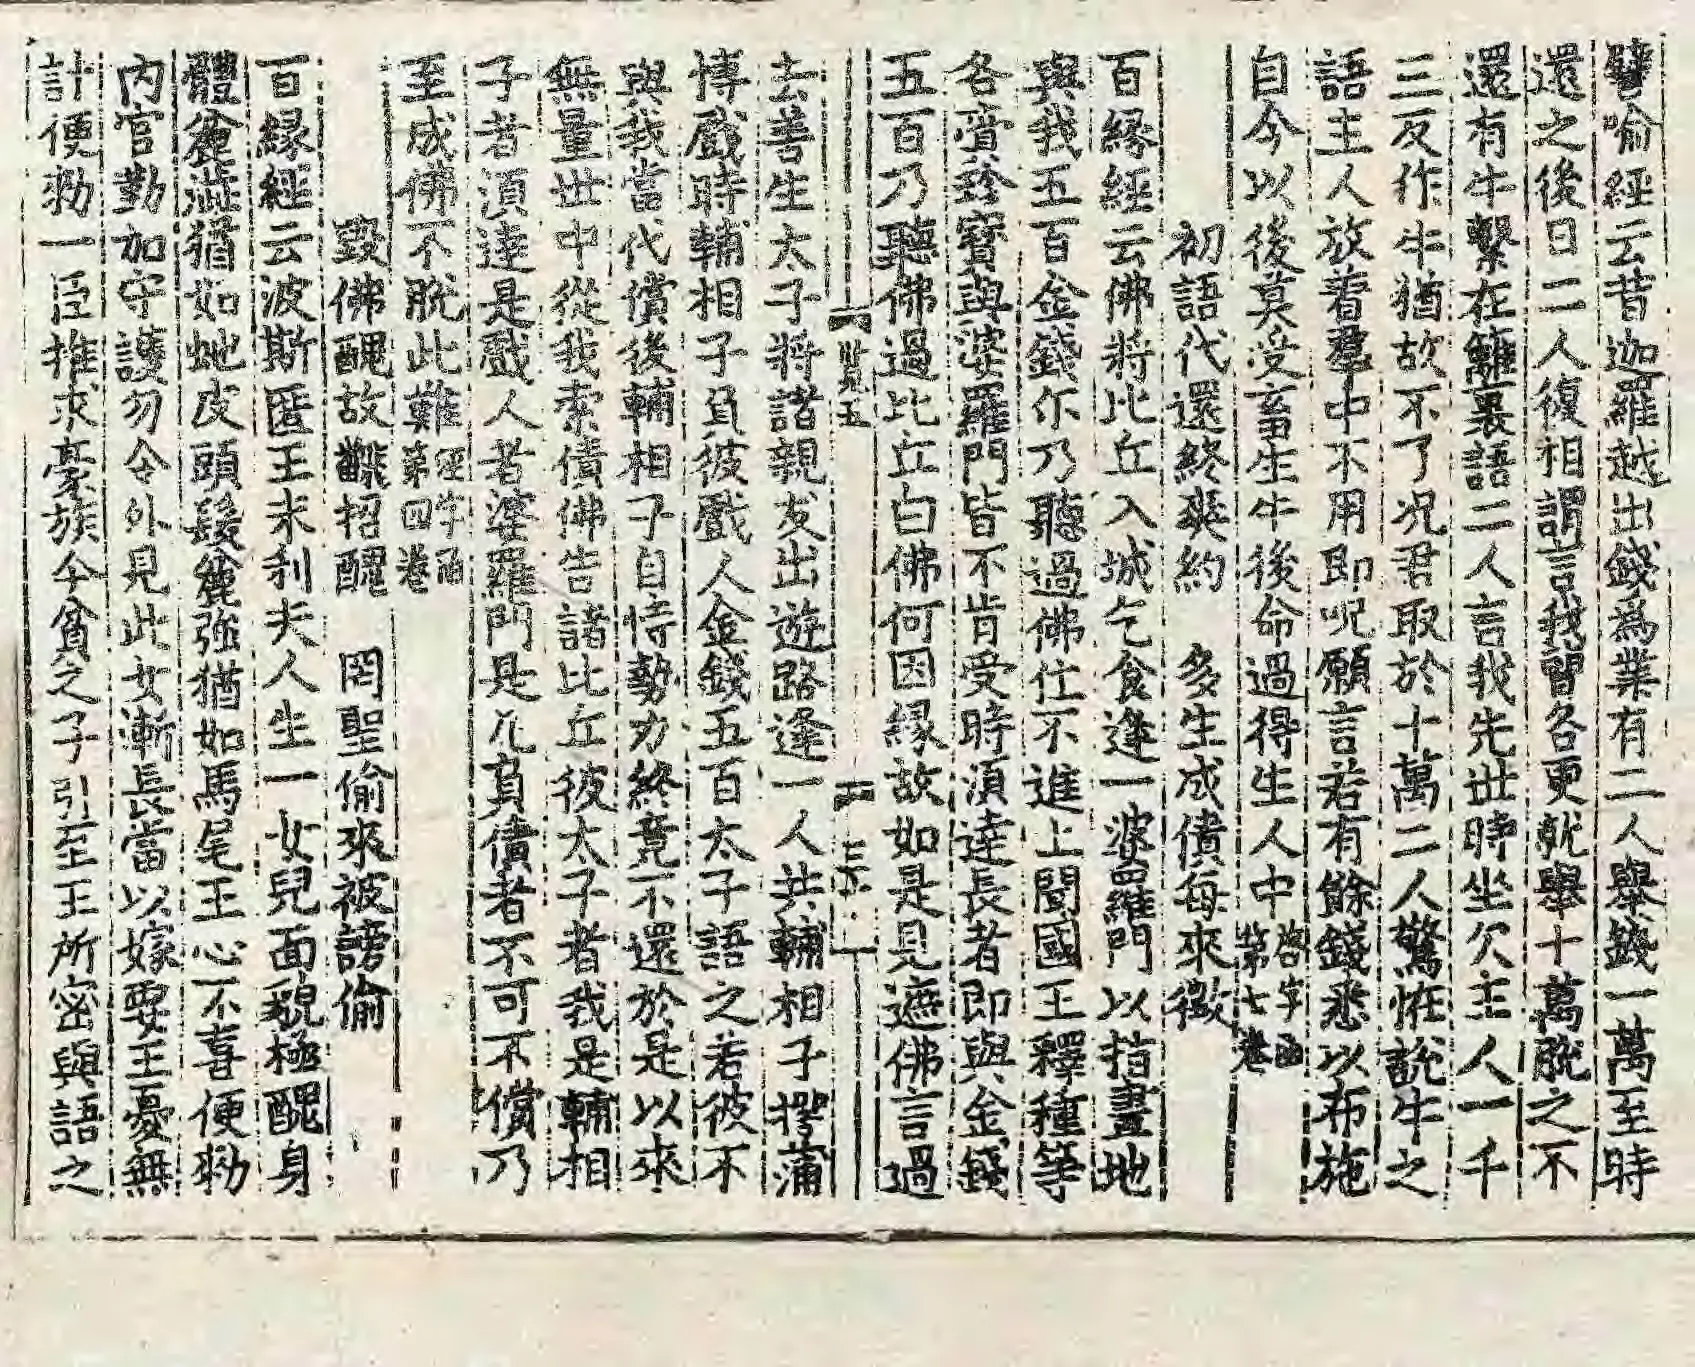 譬喻經云昔迦羅越出錢爲業有二人舉錢一萬至時
還之後日二人復相謂言我曹各更就舉十萬脫之不
還有牛繫在籬裏語二人言我先世時坐欠主人一千
三反作牛猶故不了况君取於十萬二人驚恠說牛之
語主人放着羣中不用即呪願言若有餘錢悉以布施
自今以後莫受畜生牛後命過得生人中 第七卷
初語代還終爽約 多生成債每來徵
百緣經云佛將比丘入城乞食逢一婆羅門以指畫地
與我五百金錢尒乃聽過佛住不進上聞國王釋種等
各賫珍寶與婆羅門皆不肯受時須達長者即與金錢
五百乃聽佛過比丘白佛何因緣故如是見遮佛言過
覽五
去善生太子將諸親友出遊路逢一人共輔相子摴蒲
博戲時輔相子負彼戲人金錢五百太子語之若彼不
與我當代償後輔相子自恃勢力終竟不還於是以來
無量世中從我索債佛告諸比丘彼太子者我是輔相
子者須達是戲人者婆羅門是凡負債者不可不償乃
至成佛不脫此難 第四卷
毀佛醜故讎招醜 罔聖偷來被謗偷
百緣經云波斯匿王末利夫人生一女兒面貌極醜身
體麄澁猶如虵皮頭髮麄強猶如馬尾王心不喜便勑
內官勤加守護勿令外見此女漸長當以嫁娶王憂無
計便勑一臣推求豪族今貧之子引至王所密與語之